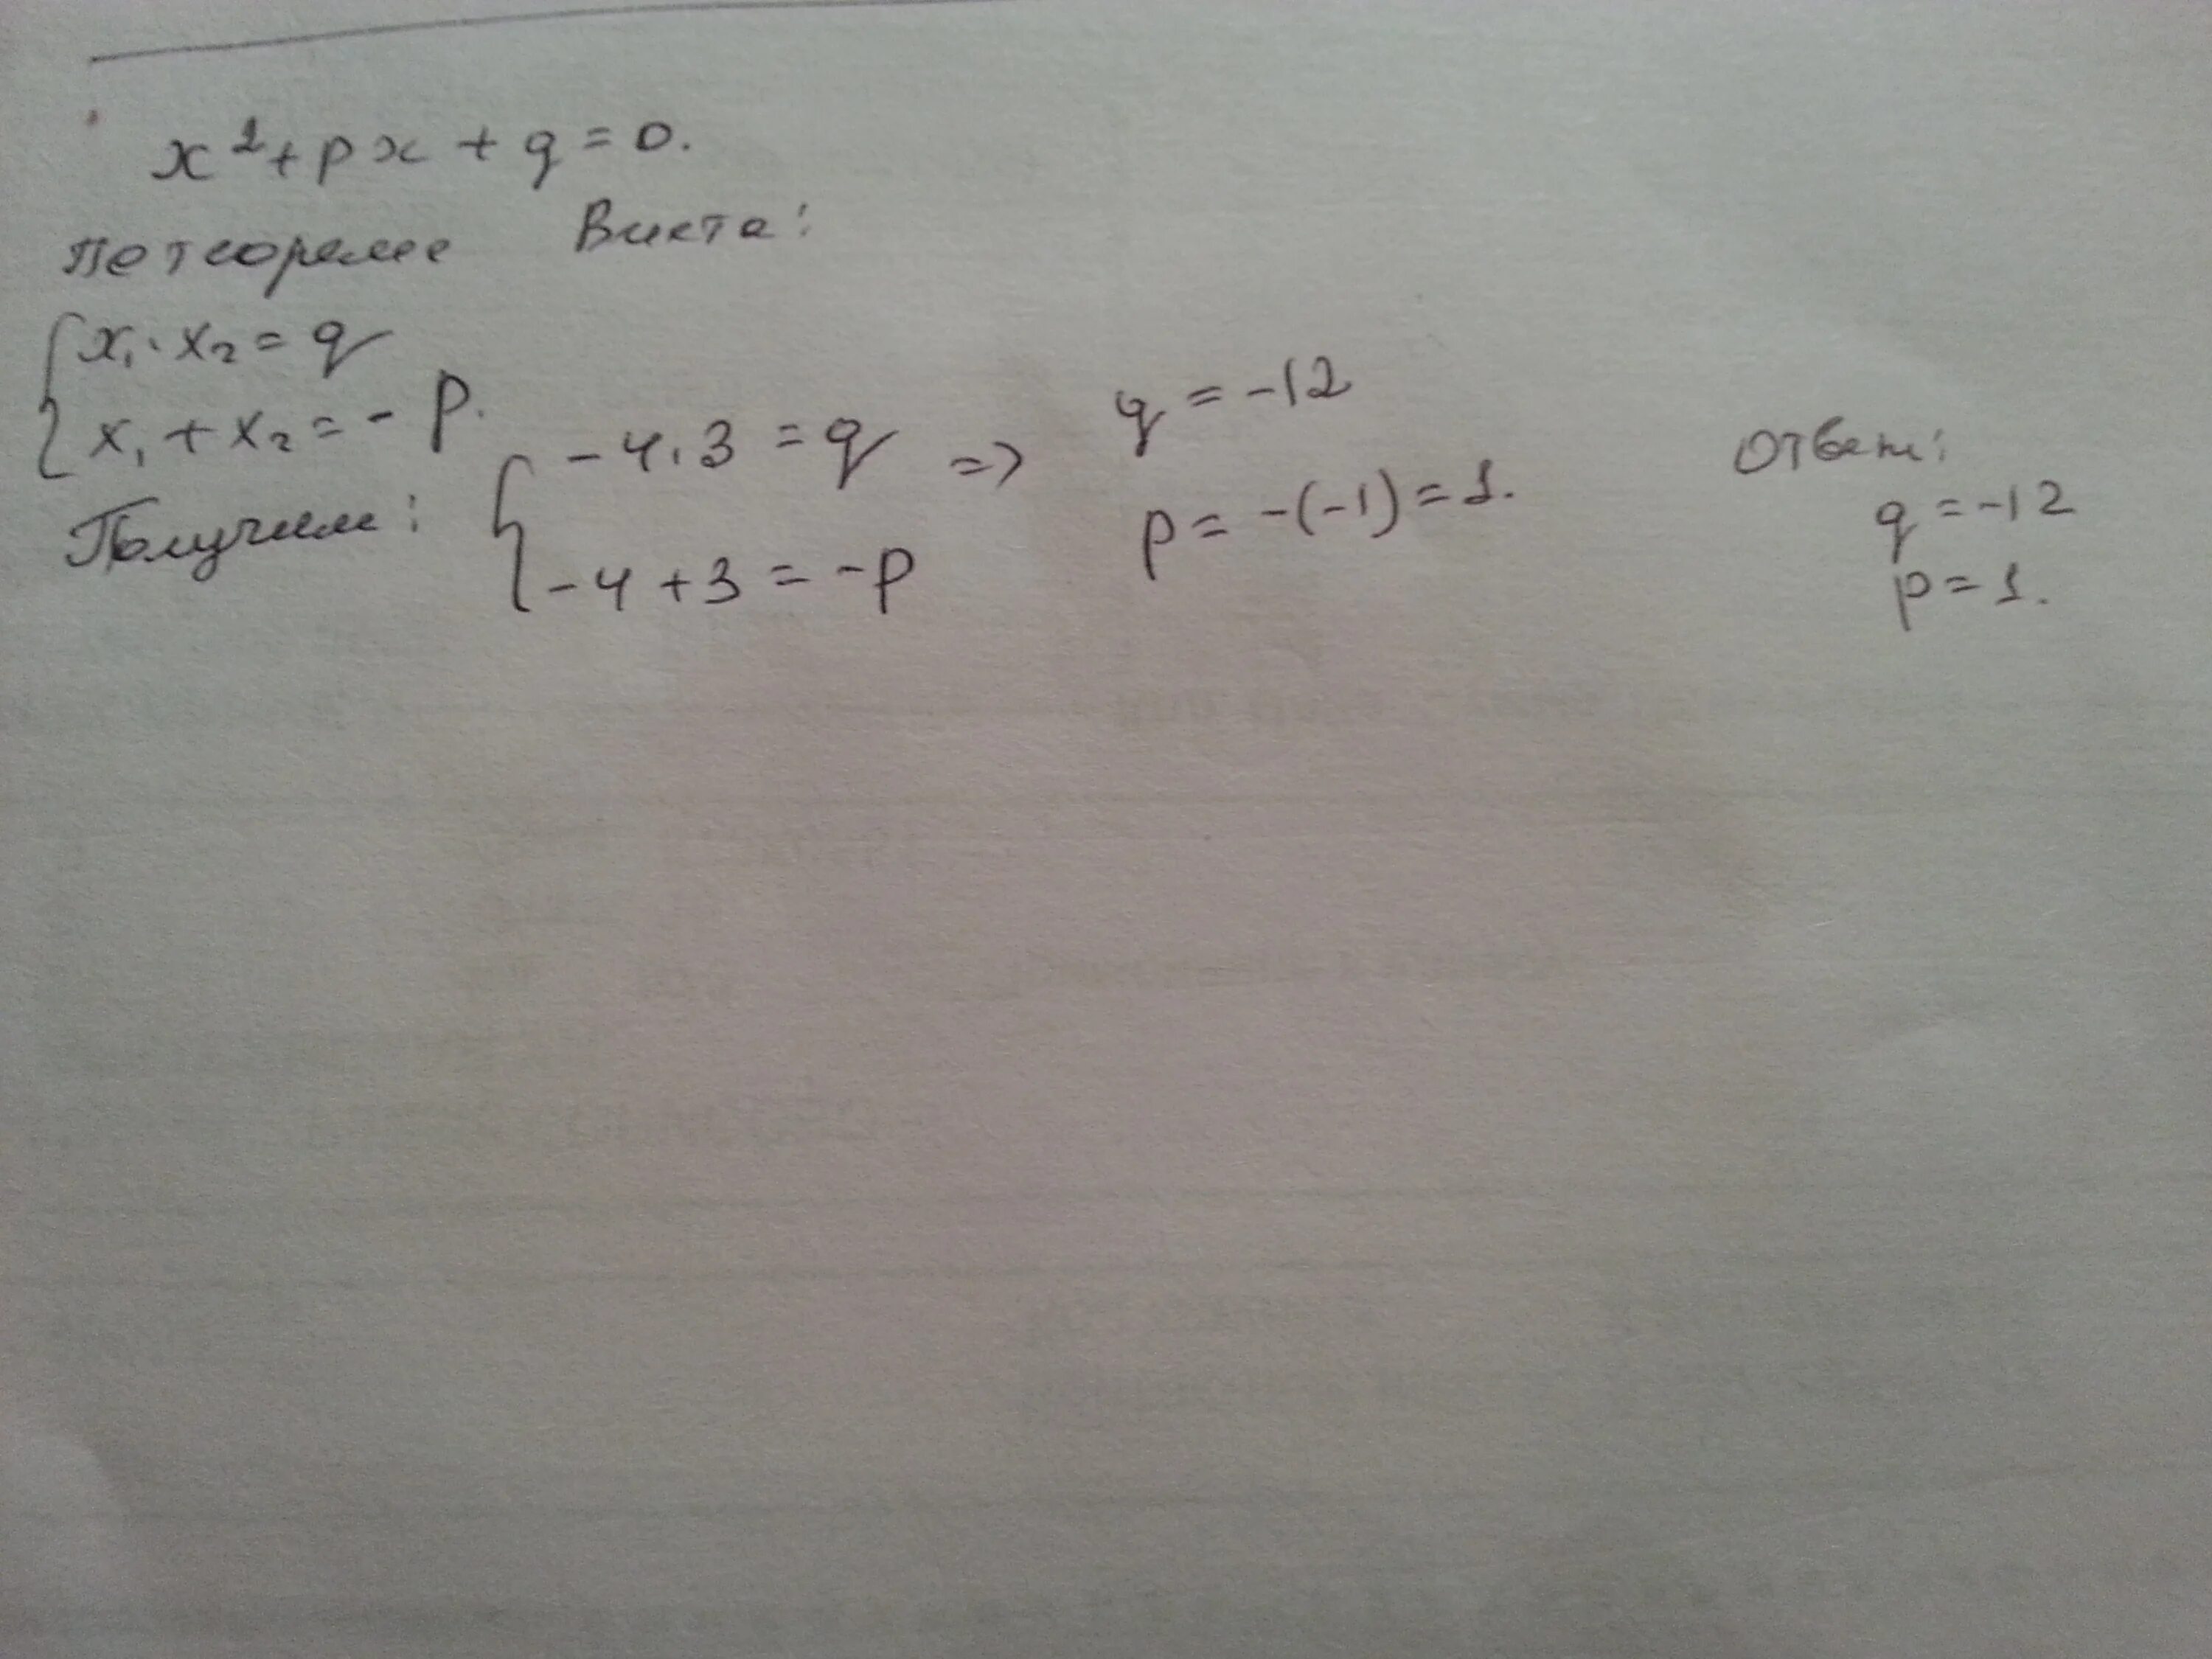 x² + px + q = 0.
По теореме Виета:
{ x₁ · x₂ = q
x₁ + x₂ = - p.
Получим: { -4 · 3 = q
-4 + 3 = -p
=> q = -12
p = -(-1) = 1.
Ответ:
q = -12
p = 1.